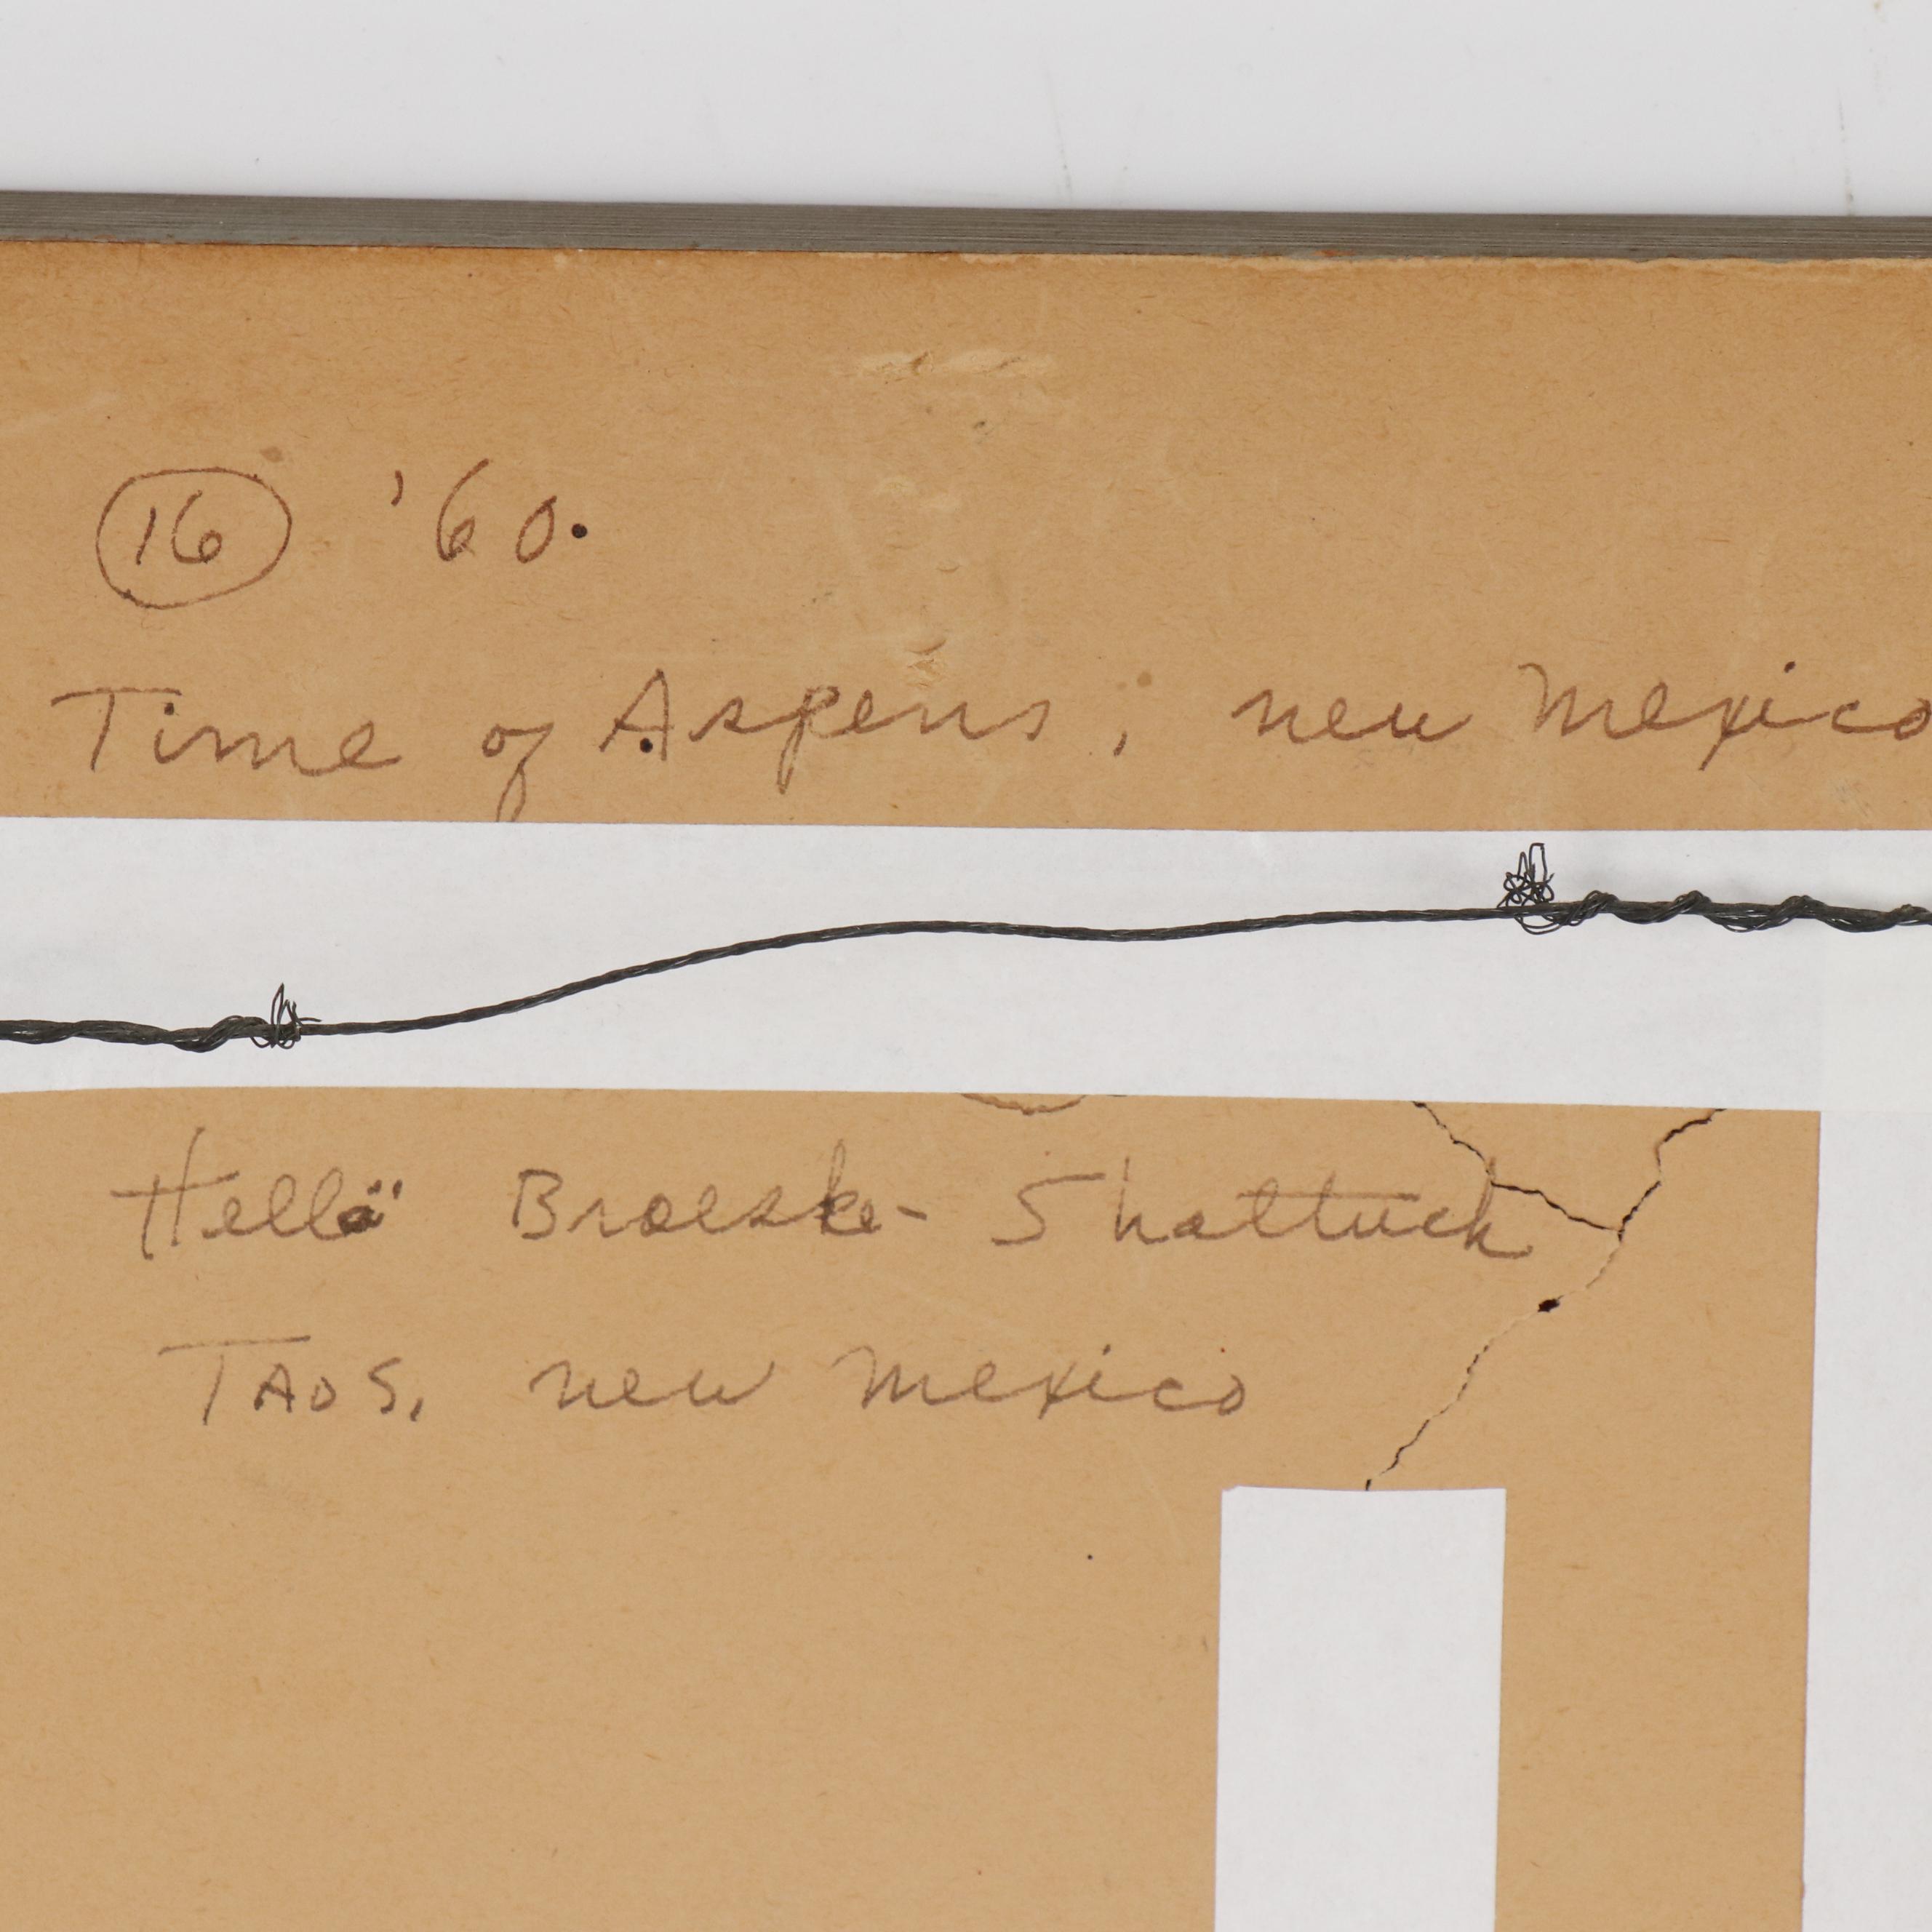 16 '60.
Time of Aspens, new Mexico
Hellä Broeske-Shattuck
TAOS, new Mexico